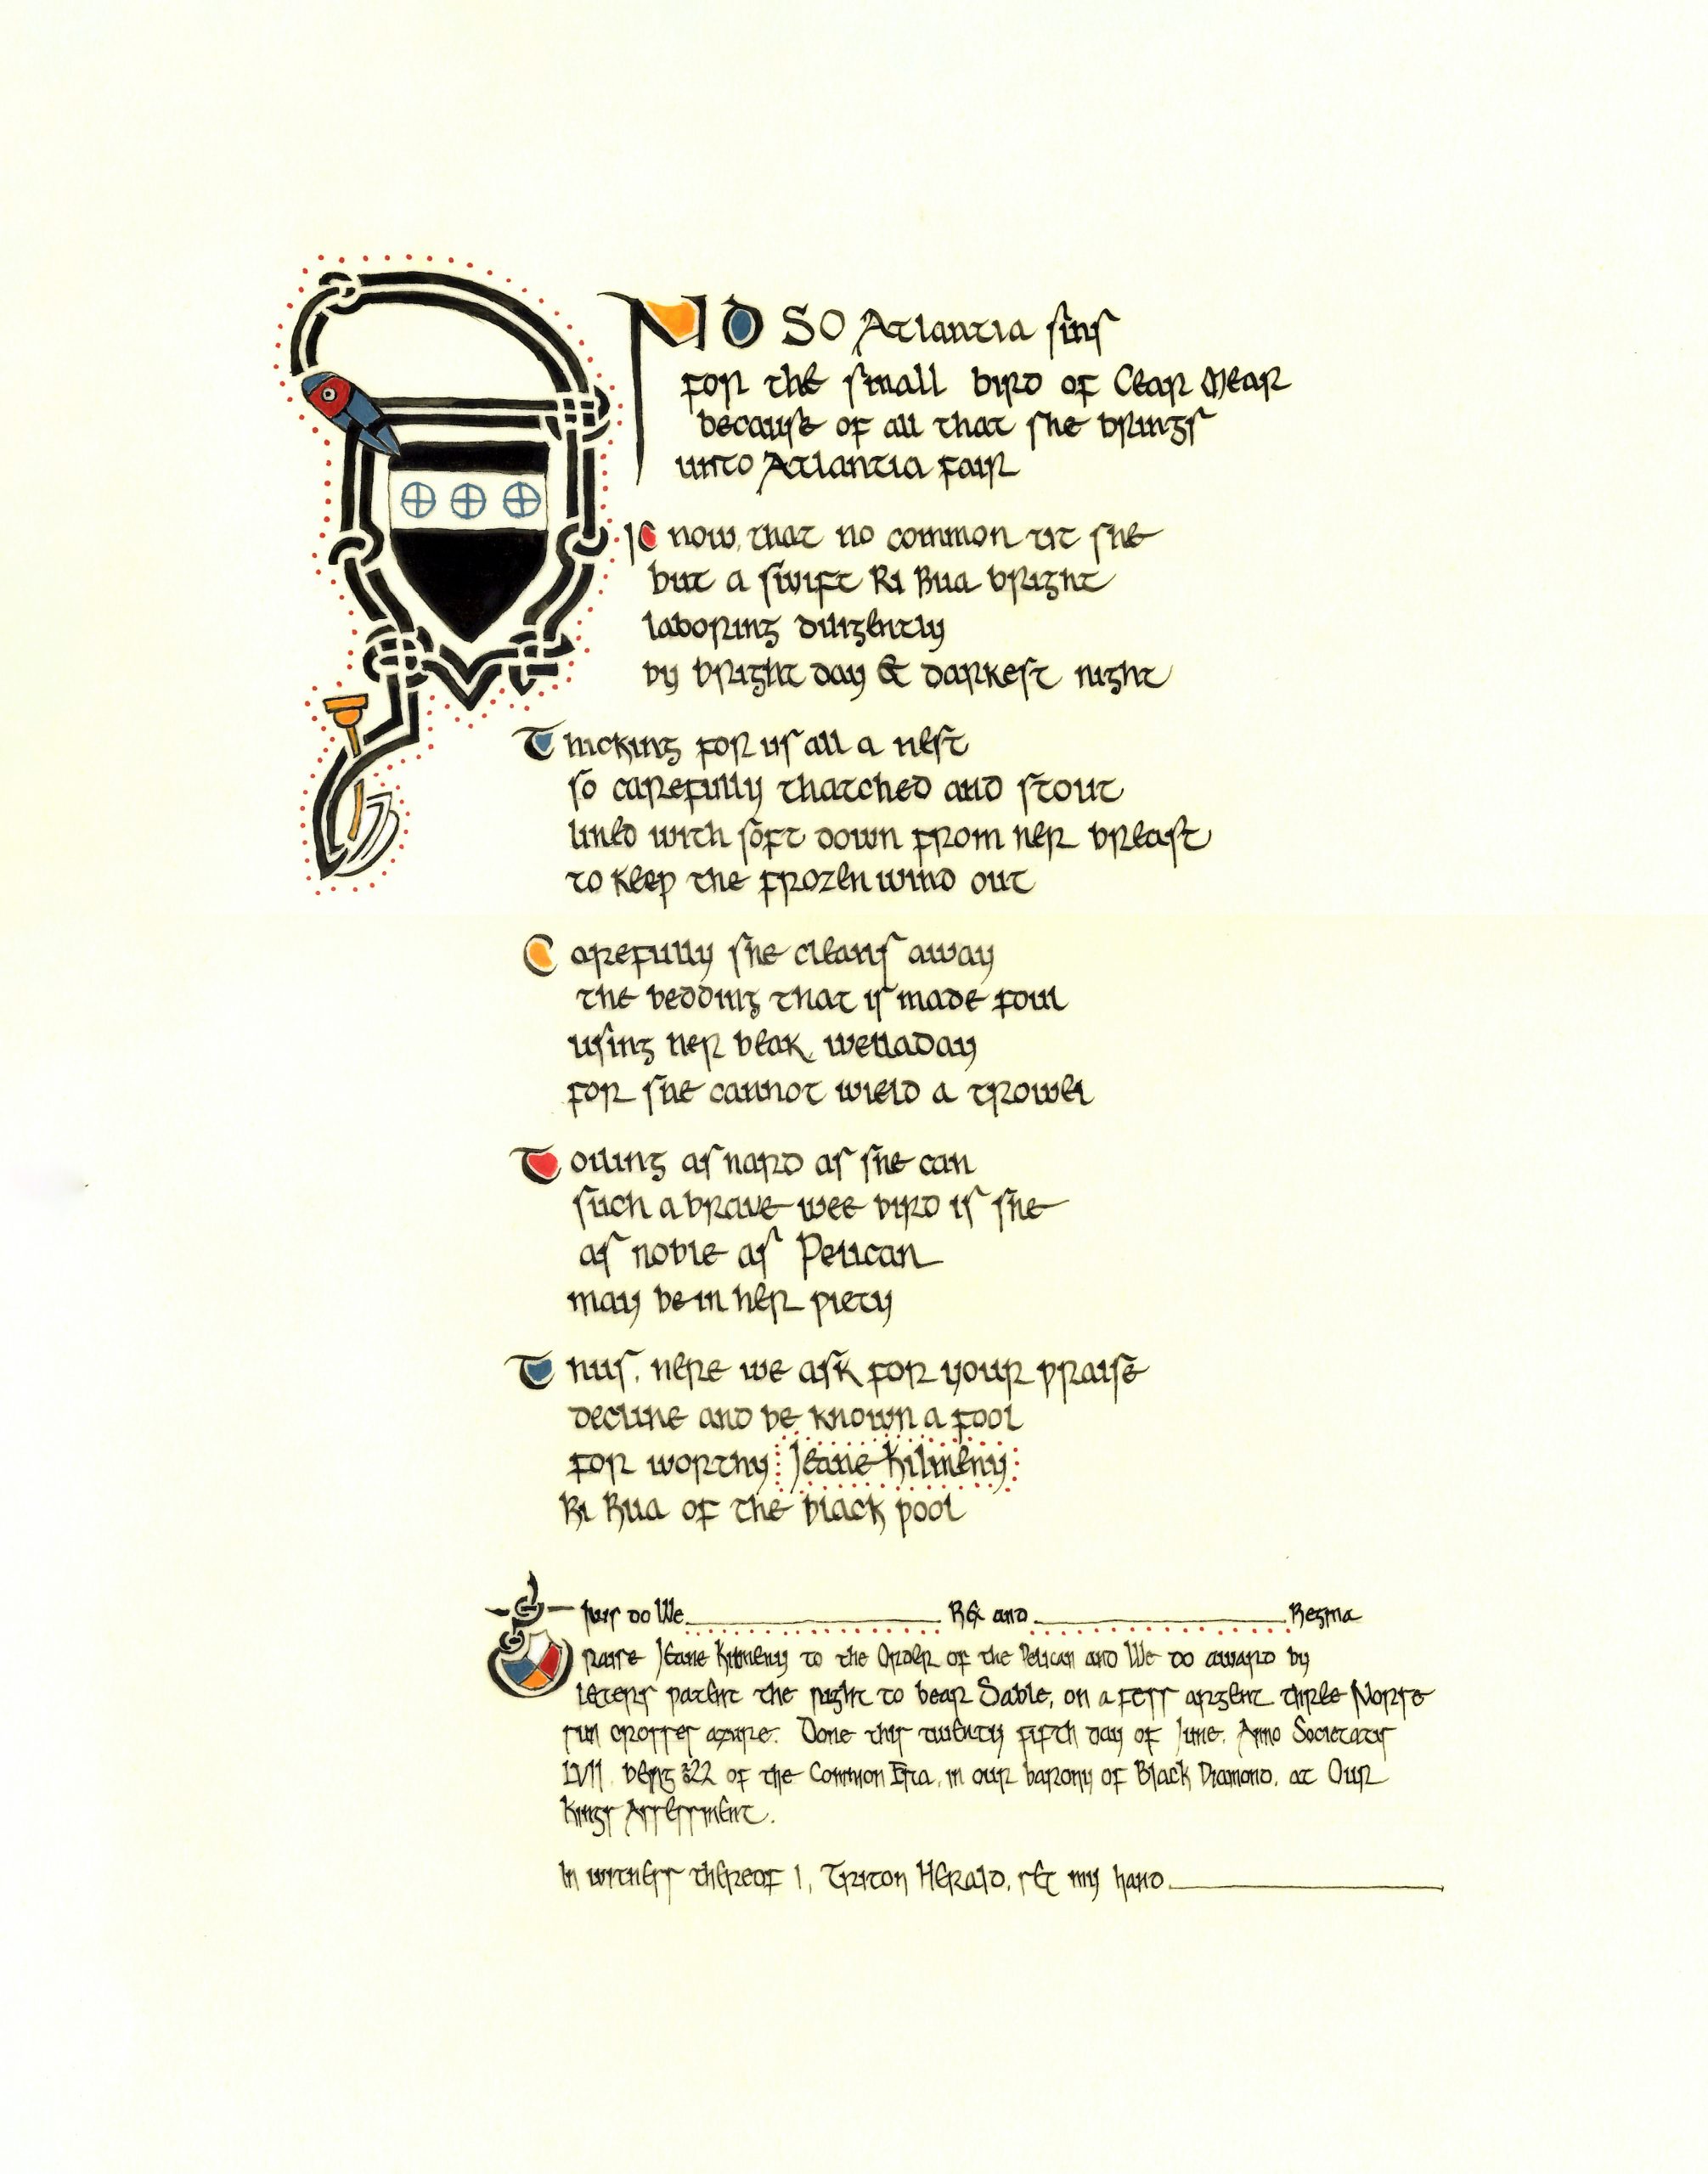 AND SO Atlantia sins
for the small bird of Cear Mear
because of all that she brings
unto Atlantia fair
Know, that no common tit she
but a swift Ri Rua bright
laboring diligently
by bright day & darkest night
Thicking for us all a nest
so carefully thatched and stout
lined with soft down from her breast
to keep the frozen wind out
Carefully she cleans away
the bedding that is made foul
using her beak, welladay
for she cannot wield a trowel
Toiling as hard as she can
such a brave wee bird is she
as noble as Pelican
may be in her piety
Thus, here we ask for your praise
decline and be known a fool
for worthy Jeane Kilmeny
Ri Rua of the black pool
Thus do We Rex and Regina
raise Jeane Kilmeny to the Order of the Pelican and We do award by
leters patent the right to bear Sable, on a fess argent three Norse
sun crosses azure. Done this twenty fifth day of June, Anno Societatis
LVII, being 22 of the Common Era, in our barony of Black Diamond, at Our
Kings Assessment.
In witness thereof I, Triton Herald, set my hand